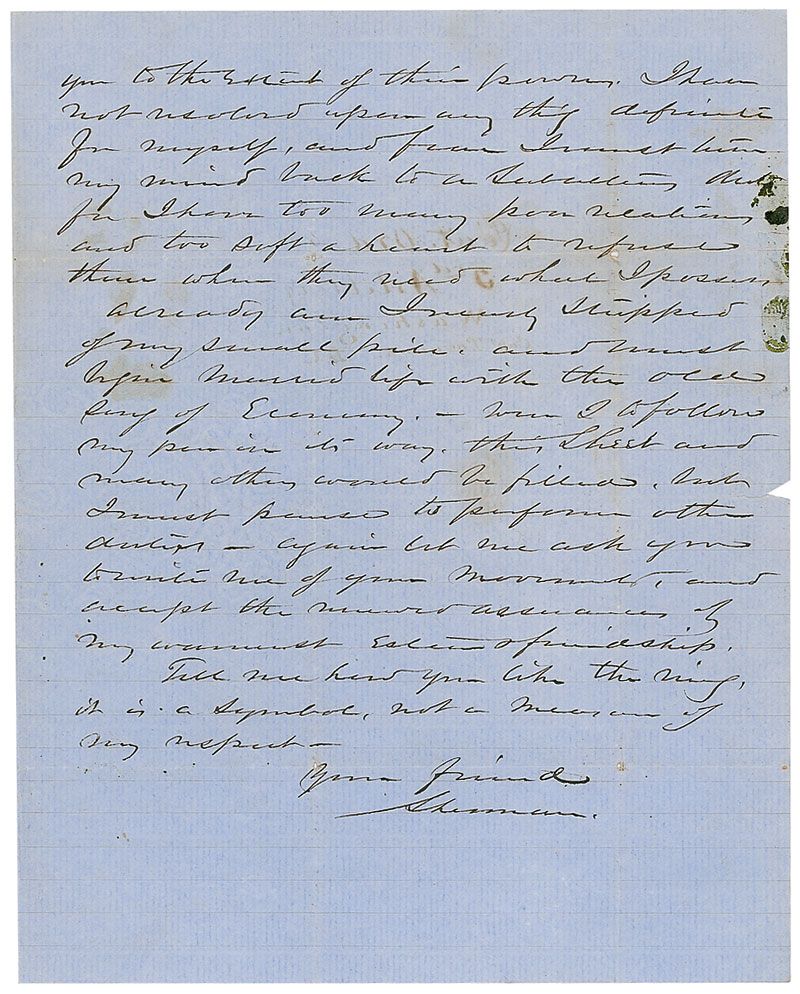 you to the Extent of their powers. I have
not resolved upon any thing definite
for myself, and fear I must turn
my mind back to a Subalterns
for I have too many poor relations
and too soft a heart to refuse
them when they need what I possess
already am I nearly stripped
of my small pile. and must
begin Married life with the old
song of Economy. — were I to follow
my pen in its way. this Sheet and
many others would be filled, but
I must pause to perform other
duties — again let me ask you
to write me of your movements, and
accept the renewed assurances of
my warmest Esteem & friendship.
Tell me how you like the ring,
it is a symbol, not a Measure of
my respect —
Your friend
Sherman.